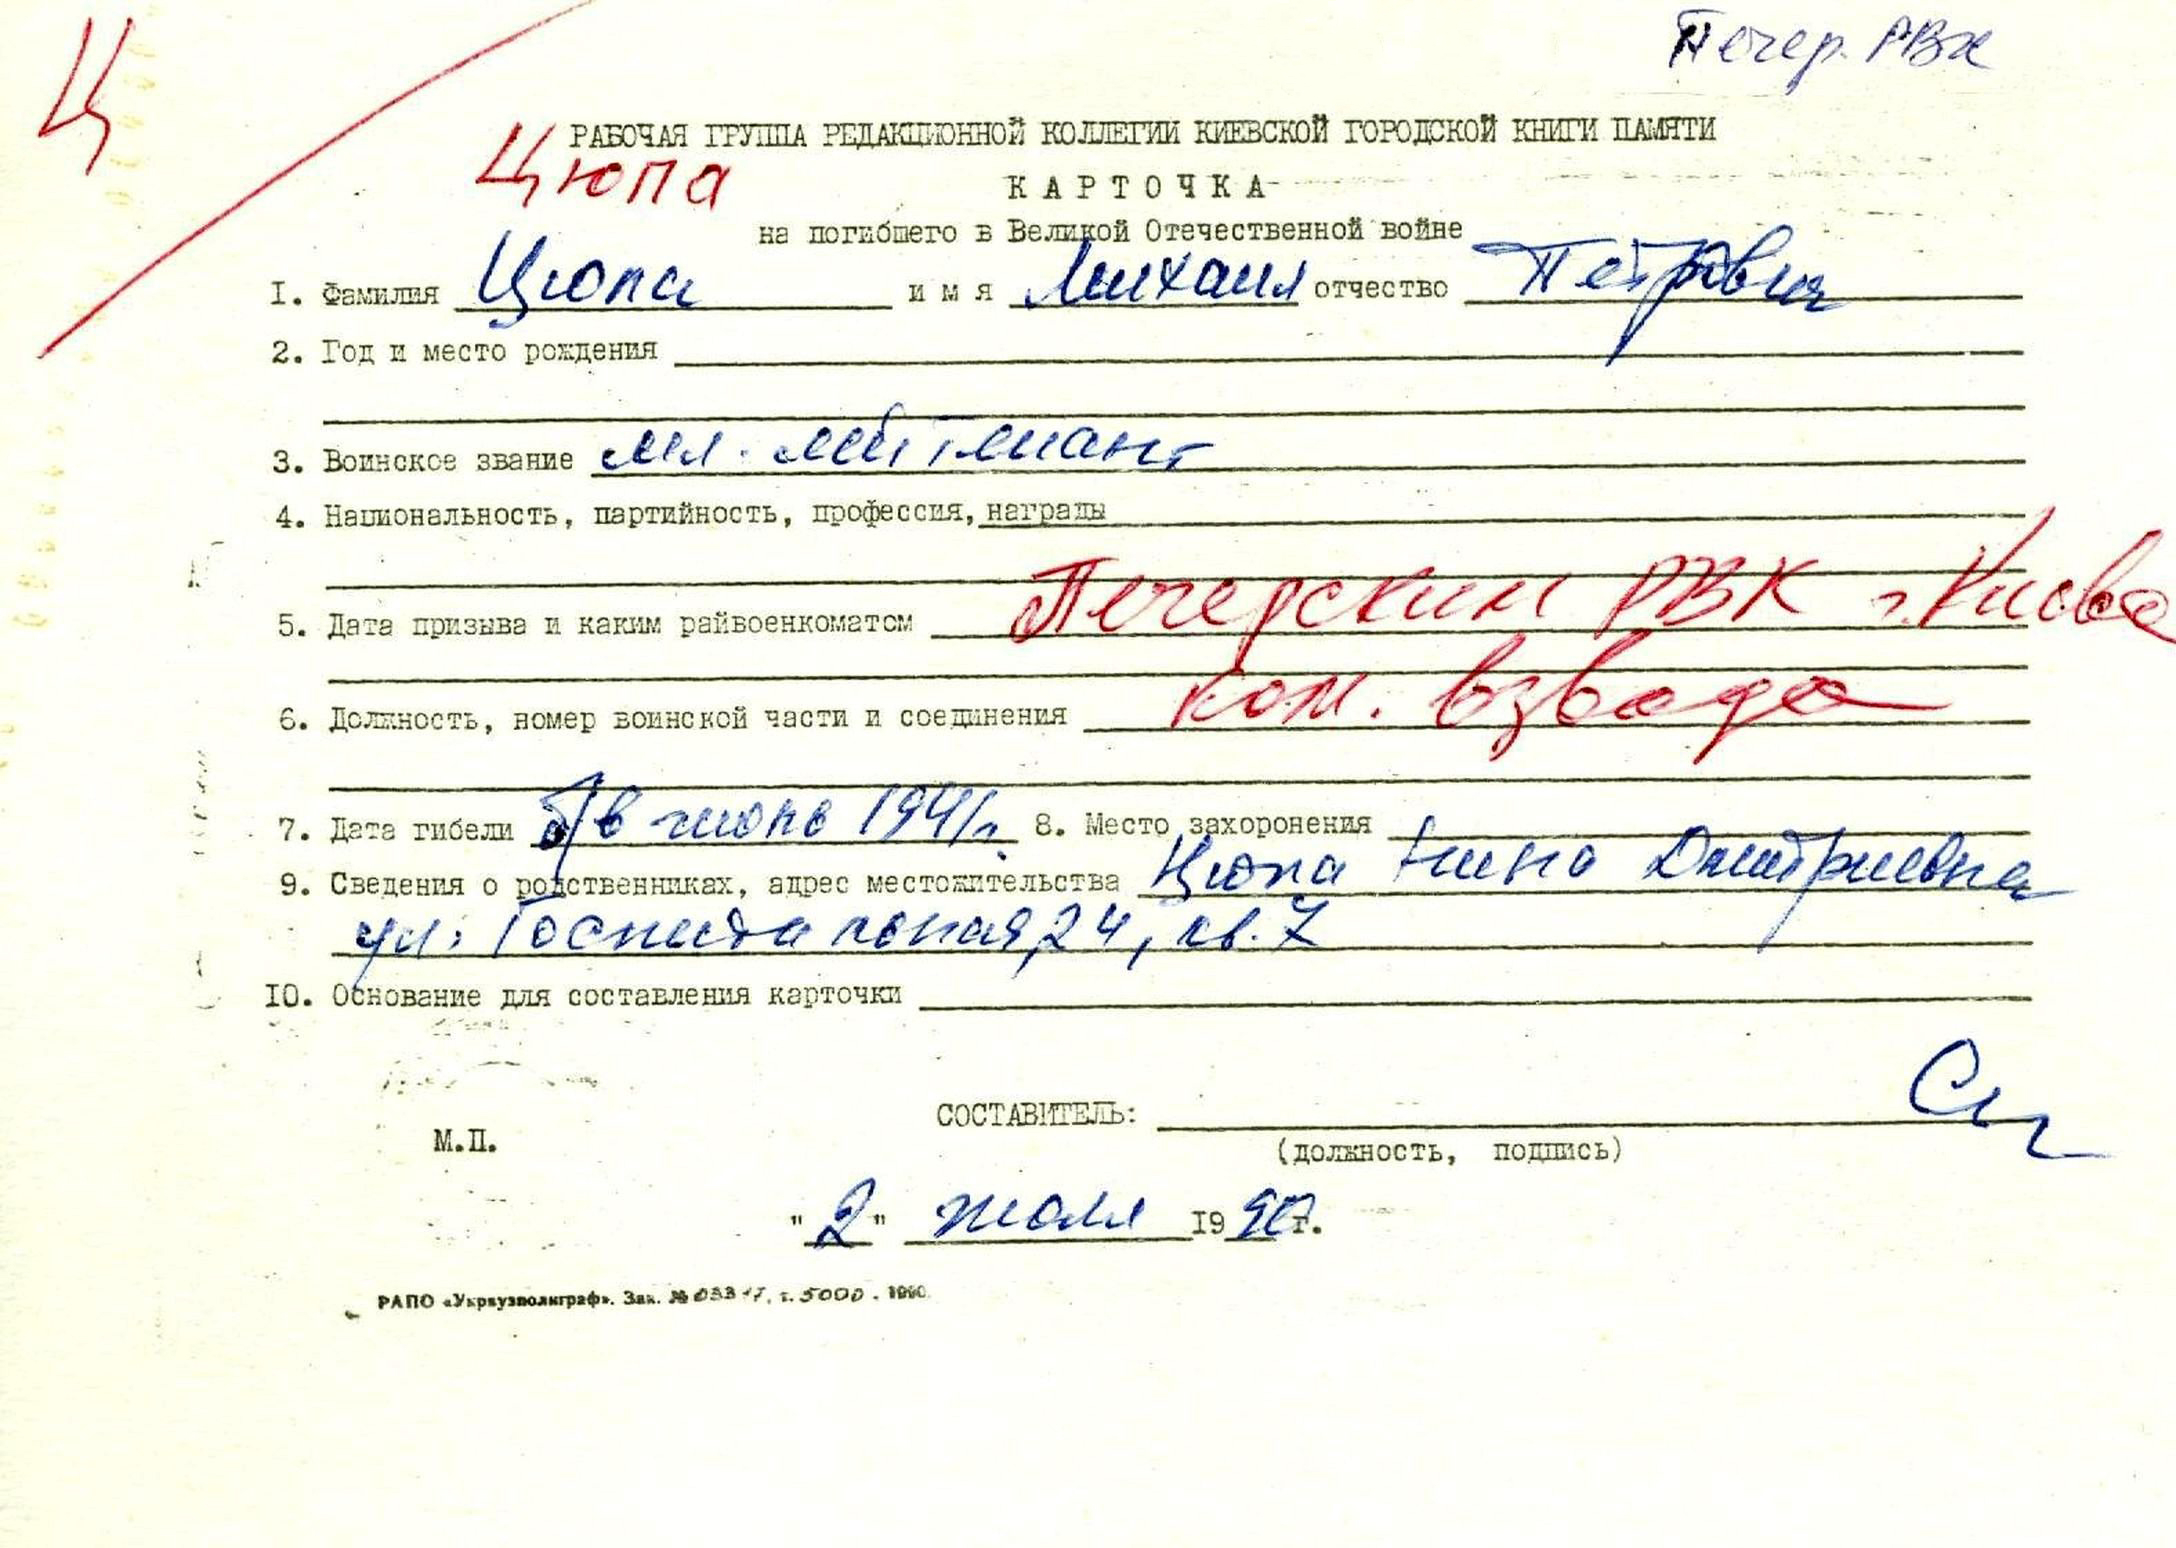 Ц
Печер. РВК
РАБОЧАЯ ГРУППА РЕДАКЦИОННОЙ КОЛЛЕГИИ КИЕВСКОЙ ГОРОДСКОЙ КНИГИ ПАМЯТИ
Цюпа
КАРТОЧКА
на погибшего в Великой Отечественной войне
1. Фамилия Цюпа имя Михаил отчество Петрович
2. Год и место рождения
3. Воинское звание мл. лейтенант
4. Национальность, партийность, профессия, награды
5. Дата призыва и каким райвоенкоматом Печерским РВК г. Киева
6. Должность, номер воинской части и соединения ком. взвода
7. Дата гибели б/в 1941г. 8. Место захоронения
9. Сведения о родственниках, адрес местожительства Цюпа Нина Дмитриевна
ул. Госпитальная, 24, кв. 7
10. Основание для составления карточки
СОСТАВИТЕЛЬ:
М.П.
(должность, подпись)
"2" июля 1990г.
РАПО «Укрвузполиграф». Зак. № т. 5000. 1990.